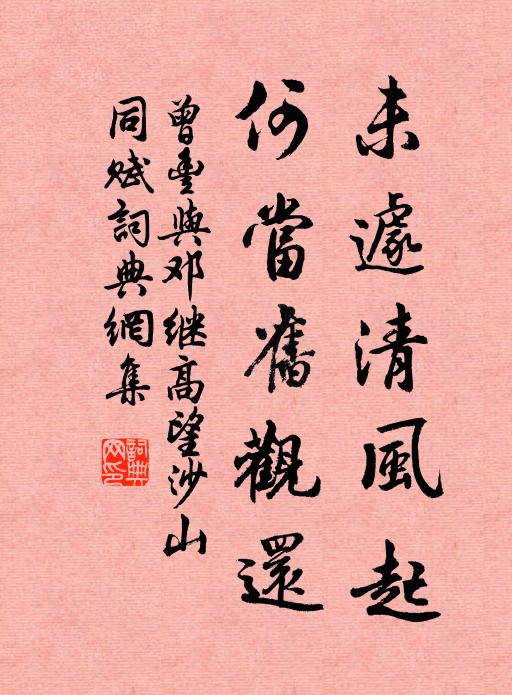 未遽清風起
何當舊觀還
曾豐與邓继高望沙山
同赋詞典網集
詞典
网印